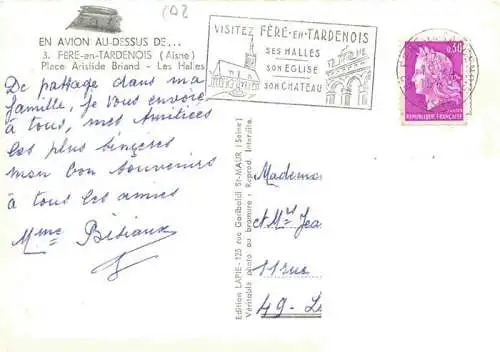 CAR
EN AVION AU-DESSUS DE...
3. FÈRE-en-TARDENOIS (Aisne)
Place Aristide Briand - Les Halles
De pattage dans ma
famille, je vous envoie
à tous, mes Amitiées
les plus sincères
mon bon souvenirs
à tous les amies
Mme Bétiaux
VISITEZ FÈRE-EN-TARDENOIS
SES HALLES
SON EGLISE
SON CHATEAU
0,30
REPUBLIQUE FRANÇAISE
Edition LAPIE - 125 rue Garibaldi St-MAUR (Seine)
Véritable photo au bromure - Reprod. Interdite.
Madame
et Mr Jea
11 rue
49-L